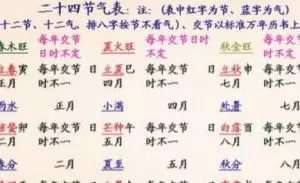 二十四节气表：注：(表中红字为节、蓝字为气)
十二节、十二气，排八字按节不看气)、交节以标准万年历书上
春木旺 每年交节时日不定 夏火旺 每年交节日时不定 秋金旺 每年交节时日不定
立春寅 每年交节日 立夏巳 每年交节日 立立秋申 每年交节
正月 四月 七月
雨水 正月 小满 四月 处暑 七月
惊蛰卯 每年交节日 芒种午 每年交节日 白露酉 每年交节
二月 五月 八月
春分 二月 夏至 五月 秋分 八月